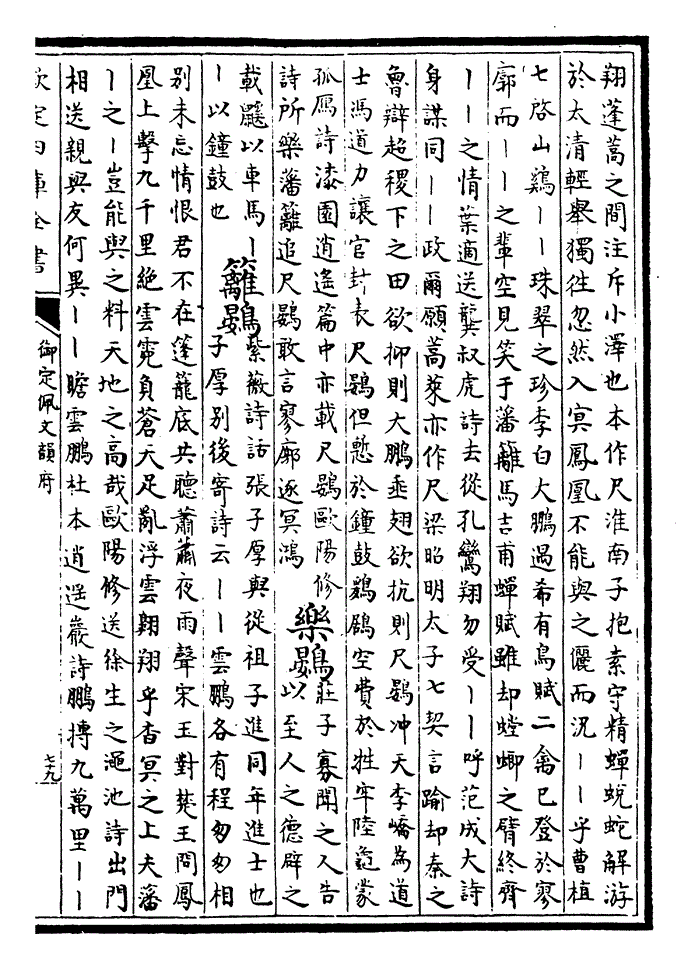 翔蓬蒿之間注斥小澤也本作尺淮南子抱素守精蟬蛻蛇解游
於太清輕舉獨往忽然入㝠鳳凰不能與之儷而況丨丨乎曹植
七啓山鷄丨丨珠翠之珍李白大鵬遇希有鳥賦二禽已登於寥
廓而丨丨之輩空見笑于藩籬馬吉甫蟬賦雖却螳螂之臂終齊
丨丨之情葉適送龔叔虎詩去從孔鸞翔勿受丨丨呼范成大詩
身謀同丨丨政爾願蒿萊亦作尺梁昭明太子七契言踰却秦之
魯辯超稷下之田欲抑則大鵬垂翅欲抗則尺鷃冲天李嶠為道
士馮道力讓官封表尺鷃但慙於鐘鼓鶢鶋空費於牲牢陸龜蒙
孤鴈詩漆園逍遙篇中亦載尺鷃歐陽修
詩所樂藩籬追尺鷃敢言寥廓逐冥鴻
樂鷃
莊子寡聞之人告
以至人之德辟之
載鼷以車馬丨
丨以鐘鼓也
籬鷃
紫薇詩話張子厚與從祖子進同年進士也
子厚別後寄詩云丨丨雲鵬各有程匆匆相
別未忘情恨君不在篷籠底共聽蕭蕭夜雨聲宋玉對楚王問鳳
凰上擊九千里絶雲霓負蒼天足亂浮雲翺翔乎杳冥之上夫藩
丨之丨豈能與之料天地之高哉歐陽修送徐生之澠池詩出門
相送親與友何異丨丨瞻雲鵬杜本逍遥巖詩鵬摶九萬里丨丨
欽定四庫全書
御定佩文韻府
七十九